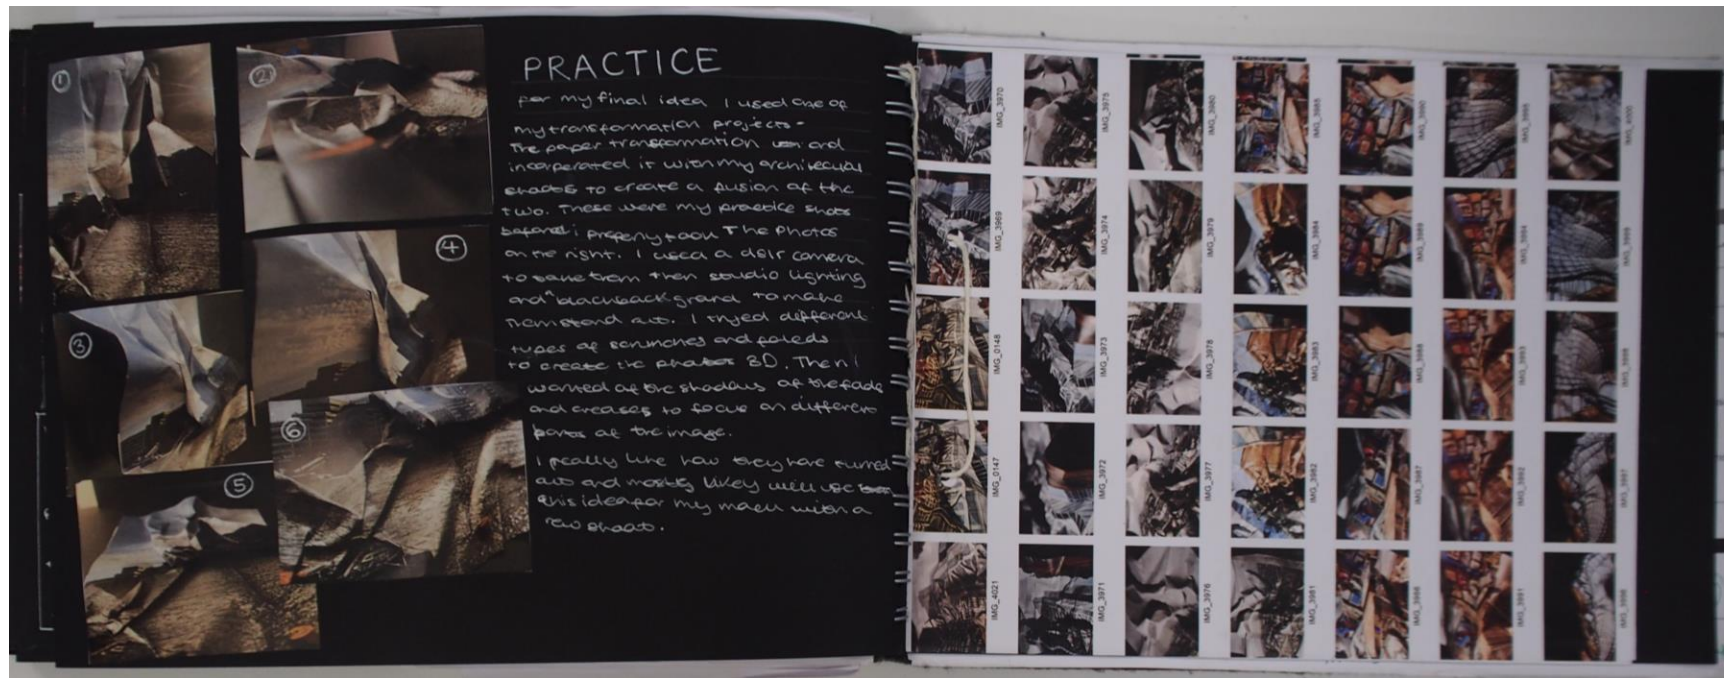 1
2
3
4
5
6
PRACTICE
for my final idea I used one of
my transformation projects -
the paper transformation and
incorperated it with my architecual
shoots to create a fusion of the
two. These were my practice shots
before i properly took The Photos
on the right. I used a dslr camera
to take them then studio lighting
and a black background to make
them stand out. I tryed different
types of scrunches and folds
to create the photos 3D. Then I
wanted the shadows of the
and creases to focus on different
parts of the image.
I really like how they have turned
out and mostly likely will use
this idea for my mock with a
new shoot.
IMG_3970
IMG_3969
IMG_0148
IMG_0147
IMG_4021
IMG_3975
IMG_3974
IMG_3973
IMG_3972
IMG_3971
IMG_3980
IMG_3979
IMG_3978
IMG_3977
IMG_3976
IMG_3985
IMG_3984
IMG_3983
IMG_3982
IMG_3981
IMG_3990
IMG_3989
IMG_3988
IMG_3987
IMG_3986
IMG_3995
IMG_3994
IMG_3993
IMG_3992
IMG_3991
IMG_4000
IMG_3999
IMG_3998
IMG_3997
IMG_3996